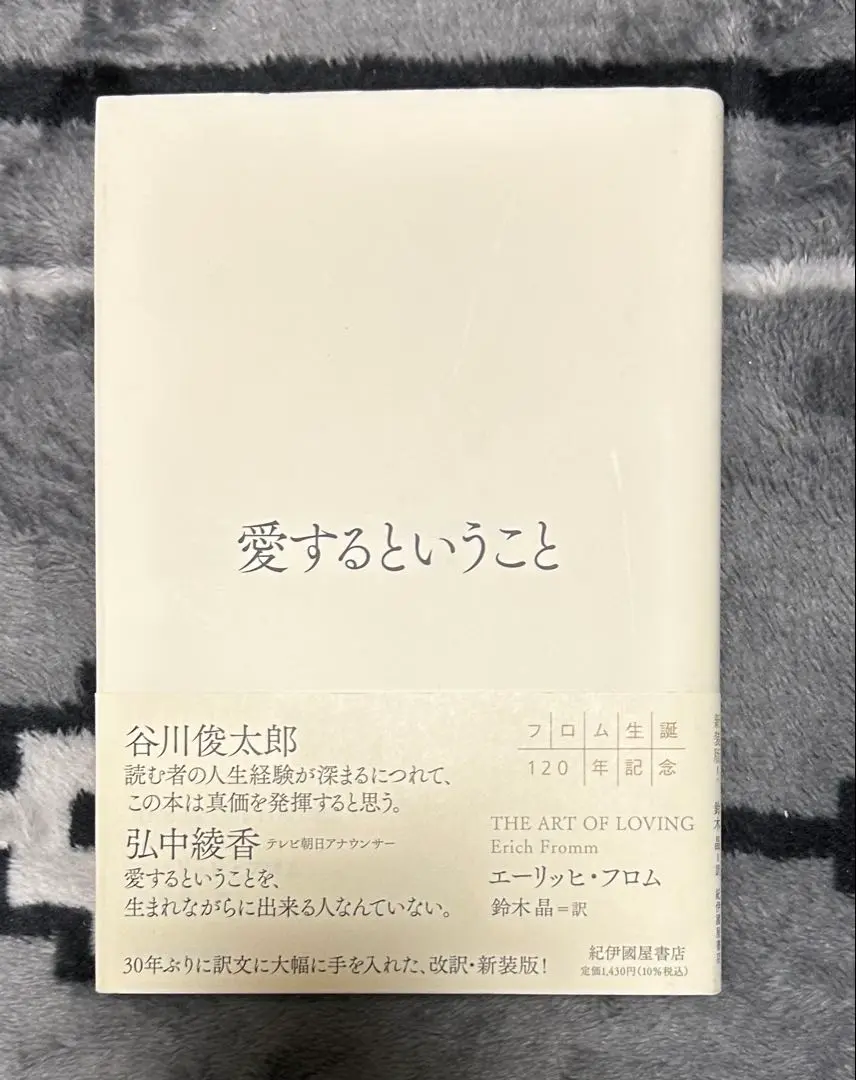 愛するということ
谷川俊太郎
読む者の人生経験が深まるにつれて、
この本は真価を発揮すると思う。
弘中綾香 テレビ朝日アナウンサー
愛するということを、
生まれながらに出来る人なんていない。
30年ぶりに訳文に大幅に手を入れた、改訳・新装版!
フロム生誕
120年記念
THE ART OF LOVING
Erich Fromm
エーリッヒ・フロム
鈴木晶=訳
紀伊國屋書店
定価1,430円(10%税込)
新装版! 鈴木晶=訳 紀伊國屋書店